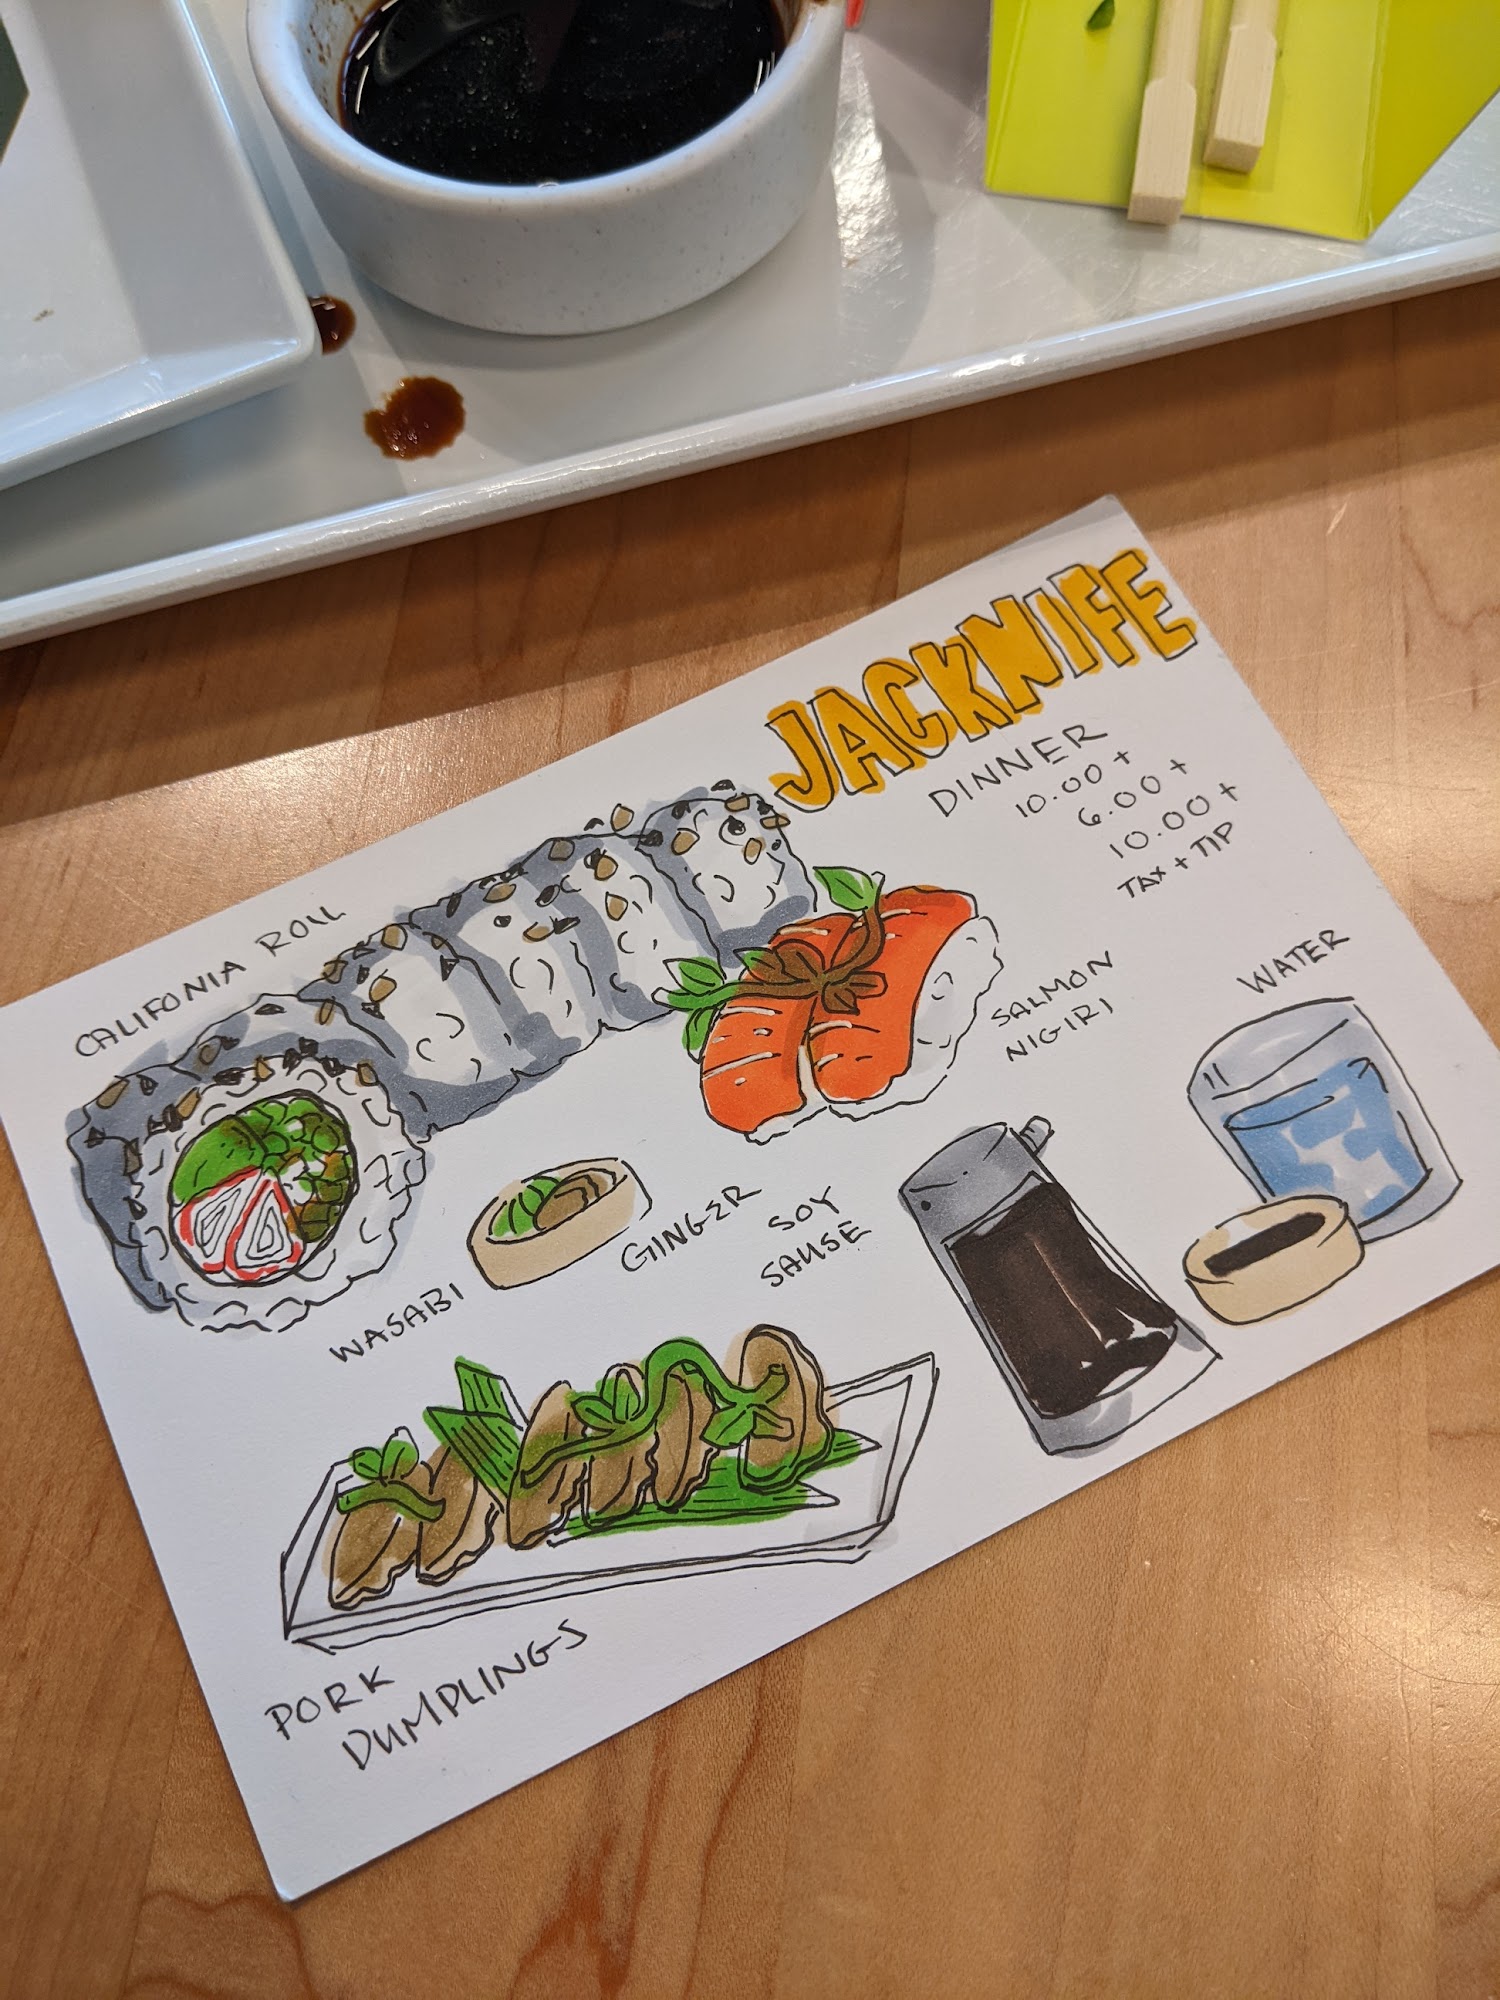 JACKNIFE
DINNER
10.00 +
6.00 +
10.00 +
TAX + TIP
CALIFONIA ROLL
SALMON
NIGIRI
WATER
WASABI
GINGER
SOY
SAUSE
PORK
DUMPLINGS